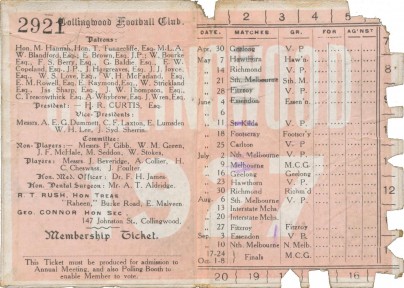 2921
Collingwood Football Club.
Patrons:
Hon. M. Hannah, Hon. T. Tunnecliffe, Esq., M.L.A.
W. Blandford, Esq., E. Brown, Esq., J.P., W. Bourke
Esq., F. S. Berry, Esq., G. Baldie, Esq., F. W.
Copeland, Esq., J.P., J. Hargreaves, Esq., J.J. Joyce,
Esq., W. S. Love, Esq., W. H. McFadland, Esq.,
E. M. Rowell, Esq., E. Raymond, Esq., W. Strickland
Esq., Jas. Sharp, Esq., Jas. W. Thompson, Esq.,
C. Treswennick, Esq., A. Whyblow, Esq., J. Wren, Esq.
President: H. R. CURTIS, Esq.
Vice-Presidents:
Messrs. A. E. G. Dummett, C. F. Laxton, E. Lumsden
W. H. Lee, J. Syd. Sherrin.
Committee:
Non-Players:— Messrs. P. Gibb, W. M. Green,
F. McHale, M. Seddon, W. Stokes,
Players: Messrs. J. Beveridge, A. Collier, H.
C. Cheswiss, J. Poulter.
Hon. Med. Officer: Dr. F. H. James.
Hon. Dental Surgeon: Mr. A. T. Alderage.
R. T. RUSH, Hon Treas
"Raheen," Burke Road, E. Malvern
GEO. CONNOR Hon Sec
147 Johnston St., Collingwood.
Membership Ticket.
This Ticket must be produced for admission to
Annual Meeting, and also Polling Booth to
enable Member to vote.
2 3 4 5
DATE. MATCHES GR. FOR AG'NST
Apr. 30 Geelong V. P.
May 7 Hawthorn Haw'n.
14 Richmond V. P.
21 Sth. Melbourne Sth. M.
28 Fitzroy V. P.
June 4 Essendon Essen'n.
11 St. Kilda V. P.
18 Footscray Footsc'y
25 Carlton V. P.
July 2 Nth. Melbourne V. P.
9 Melbourne M.C.G.
16 Geelong Geelong
23 Hawthorn V. P.
30 Richmond Richm'd
Aug. 6 Sth. Melbourne V. P.
13 Interstate Mchs.
20 Interstate Mchs.
27 Fitzroy Fitzroy
Sep. 3 Essendon V. P.
10 Nth. Melbourne N. Melb
17-24 Finals M.C.G.
Oct. 1-8
8
11
12
20 19 16